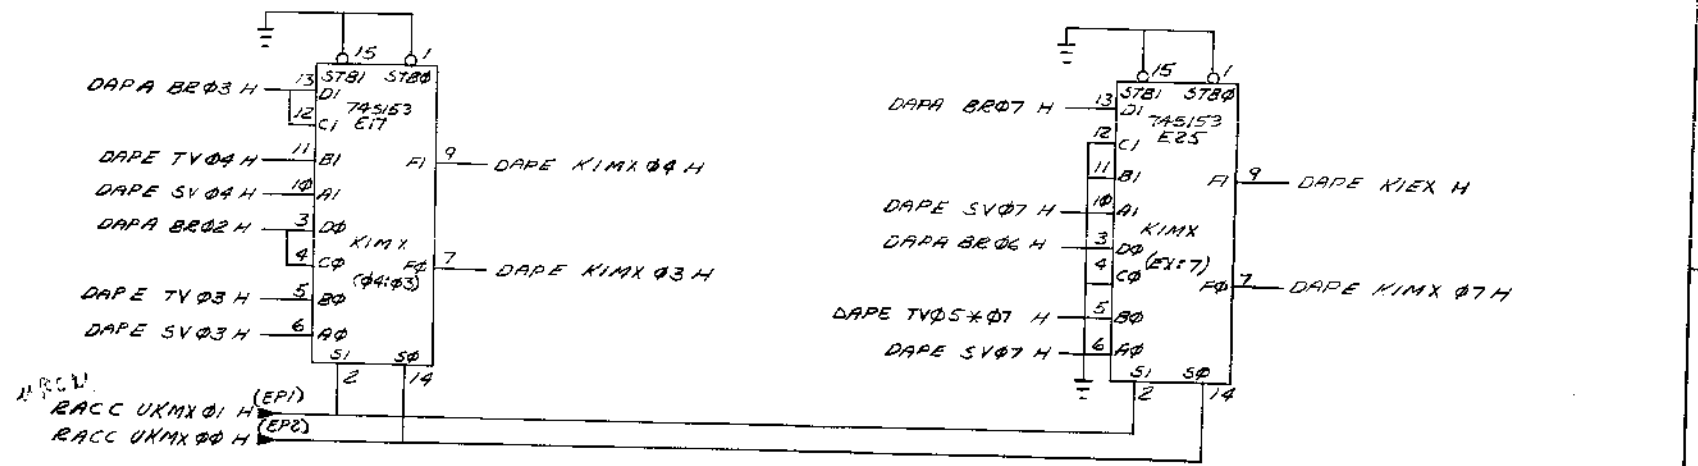 15 1
DAPA BRØ3 H 13 D1 STB1 STBØ
12 C1 74S153
E17
DAPE TVØ4 H 11 B1 F1 9 DAPE KIMX Ø4 H
DAPE SVØ4 H 1Ø A1
DAPA BRØ2 H 3 DØ
KIMX
4 CØ FØ 7 DAPE KIMX Ø3 H
(Ø4:Ø3)
DAPE TVØ3 H 5 BØ
DAPE SVØ3 H 6 AØ
S1 SØ
2 14
RACC UKMX Ø1 H (EP1)
RACC UKMX ØØ H (EP2)
15 1
STB1 STBØ
DAPA BRØ7 H 13 D1
74S153
12 C1 E25
11 B1 F1 9 DAPE KIEX H
DAPE SVØ7 H 1Ø A1
KIMX
DAPA BRØ6 H 3 DØ
(EX:7)
4 CØ FØ 7 DAPE KIMX Ø7 H
DAPE TVØ5*Ø7 H 5 BØ
DAPE SVØ7 H 6 AØ
S1 SØ
2 14